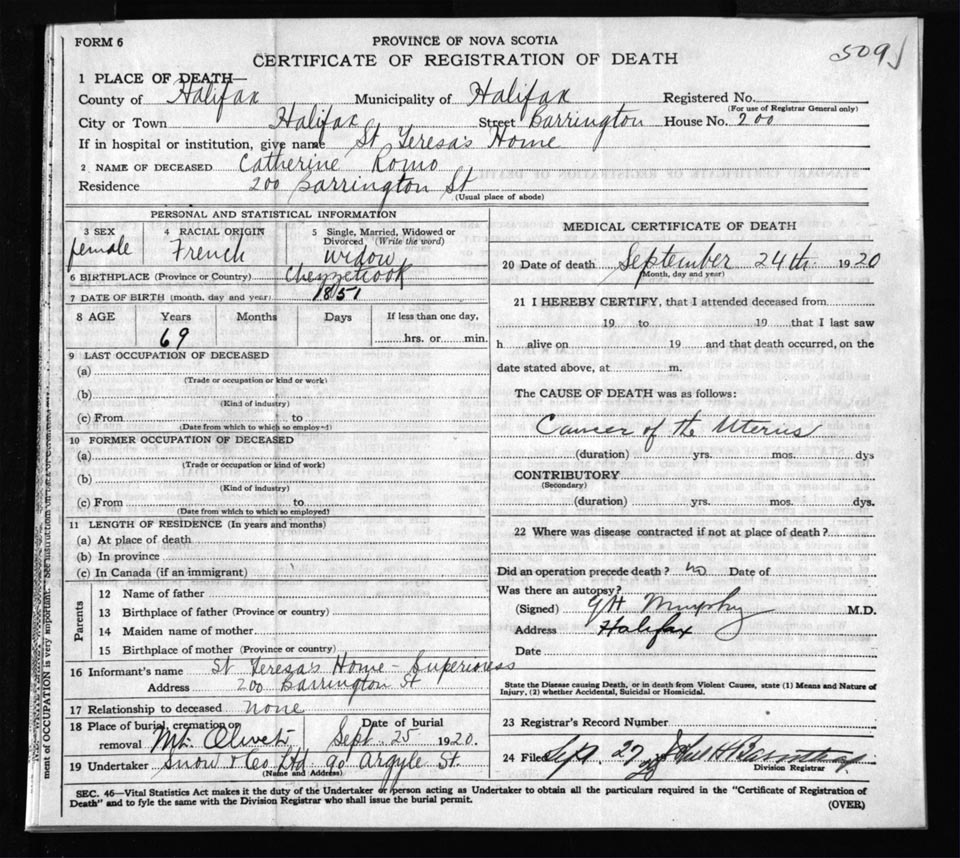 FORM 6
PROVINCE OF NOVA SCOTIA
CERTIFICATE OF REGISTRATION OF DEATH
509
1 PLACE OF DEATH—
County of Halifax Municipality of Halifax Registered No.
(For use of Registrar General only)
City or Town Halifax Street Barrington House No. 200
If in hospital or institution, give name St Teresa's Home
2 NAME OF DECEASED Catherine Romo
Residence 200 Barrington St
(Usual place of abode)
PERSONAL AND STATISTICAL INFORMATION
3 SEX 4 RACIAL ORIGIN 5 Single, Married, Widowed or Divorced (Write the word)
female French widow
6 BIRTHPLACE (Province or Country) Chezzetcook
7 DATE OF BIRTH (month, day and year) 1851
8 AGE Years Months Days If less than one day,
69 hrs. or min.
9 LAST OCCUPATION OF DECEASED
(a)
(Trade or occupation or kind or work)
(b)
(Kind of industry)
(c) From to
(Date from which to which so employed)
10 FORMER OCCUPATION OF DECEASED
(a)
(Trade or occupation or kind of work)
(b)
(Kind of industry)
(c) From to
(Date from which to which so employed)
11 LENGTH OF RESIDENCE (In years and months)
(a) At place of death
(b) In province
(c) In Canada (if an immigrant)
Parents
12 Name of father
13 Birthplace of father (Province or country)
14 Maiden name of mother
15 Birthplace of mother (Province or country)
16 Informant's name St Teresa's Home - Superioress
Address 200 Barrington St
17 Relationship to deceased none
18 Place of burial, cremation or removal Mt. Olivet Date of burial Sept 25 1920.
19 Undertaker Snow & Co Ltd 90 Argyle St.
(Name and Address)
MEDICAL CERTIFICATE OF DEATH
20 Date of death September 24th 1920
(Month, day and year)
21 I HEREBY CERTIFY, that I attended deceased from
19 to 19 that I last saw
h alive on 19 and that death occurred, on the
date stated above, at m.
The CAUSE OF DEATH was as follows:
Cancer of the Uterus
(duration) yrs. mos. dys
CONTRIBUTORY
(Secondary)
(duration) yrs. mos. dys.
22 Where was disease contracted if not at place of death?
Did an operation precede death? no Date of
Was there an autopsy?
(Signed) GH Murphy M.D.
Address Halifax
Date
State the Disease causing Death, or in death from Violent Causes, state (1) Means and Nature of
Injury, (2) whether Accidental, Suicidal or Homicidal.
23 Registrar's Record Number
24 Filed Sept. 27
Division Registrar
SEC. 46—Vital Statistics Act makes it the duty of the Undertaker or person acting as Undertaker to obtain all the particulars required in the "Certificate of Registration of
Death" and to fyle the same with the Division Registrar who shall issue the burial permit.
(OVER)
ment of OCCUPATION is very important.